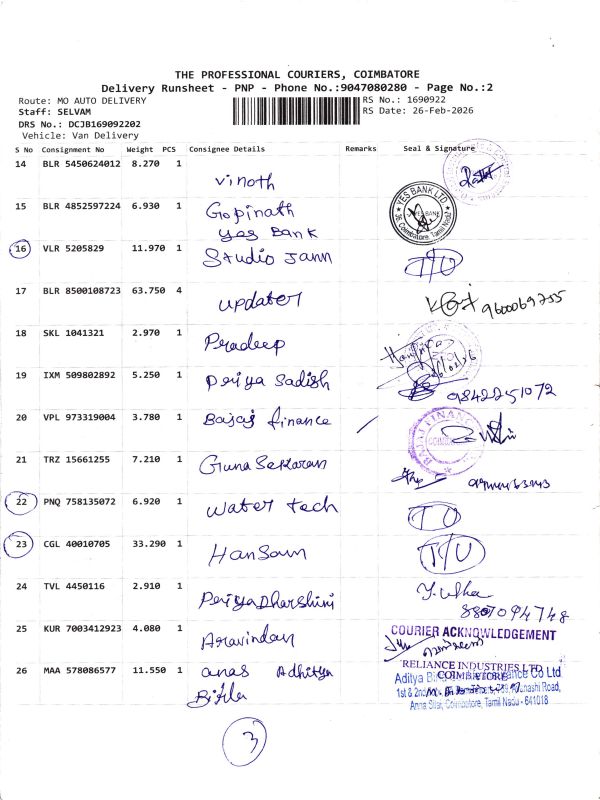 THE PROFESSIONAL COURIERS, COIMBATORE
Delivery Runsheet - PNP - Phone No.:9047080280 - Page No.:2
Route: MO AUTO DELIVERY RS No.: 1690922
Staff: SELVAM RS Date: 26-Feb-2026
DRS No.: DCJB169092202
Vehicle: Van Delivery
S No Consignment No Weight PCS Consignee Details Remarks Seal & Signature
14 BLR 5450624012 8.270 1
Vinoth
15 BLR 4852597224 6.930 1 Gopinath
Yes Bank
YES BANK LTD
YES BANK
Coimbatore, Tamil Nadu
16 VLR 5205829 11.970 1 Studio Jann T/U
17 BLR 8500108723 63.750 4
updater 9600069755
18 SKL 1041321 2.970 1
Pradeep
19 IXM 509802892 5.250 1 Periya Sadish
9842251072
20 VPL 973319004 3.780 1 Bajaj finance
BAJAJ FINANCE
21 TRZ 15661255 7.210 1 Guna Sekaran
22 PNQ 758135072 6.920 1 water tech TO
23 CGL 40010705 33.290 1 Hansam T/U
24 TVL 4450116 2.910 1
PeriyaDharshini
25 KUR 7003412923 4.080 1 Aravindan
COURIER ACKNOWLEDGEMENT
RELIANCE INDUSTRIES LTD
COIMBATORE
26 MAA 578086577 11.550 1 anas Adhitya
Birla
Aditya Bi Co Ltd
1st & 2nd Road,
Anna Silai, Coimbatore, Tamil Nadu - 641018
3